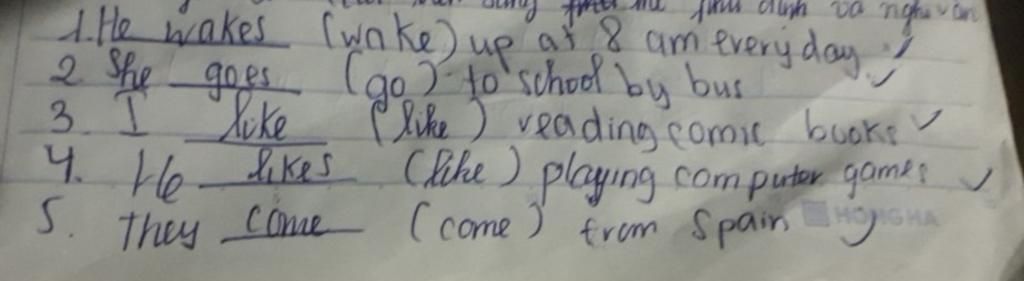 phủ định và nghi vấn
1. He wakes (wake) up at 8 am every day.
2 She goes (go) to school by bus
3. I like (like) reading comic books
4. He likes (like) playing computer games
5. They come (come) from Spain
HONG HA